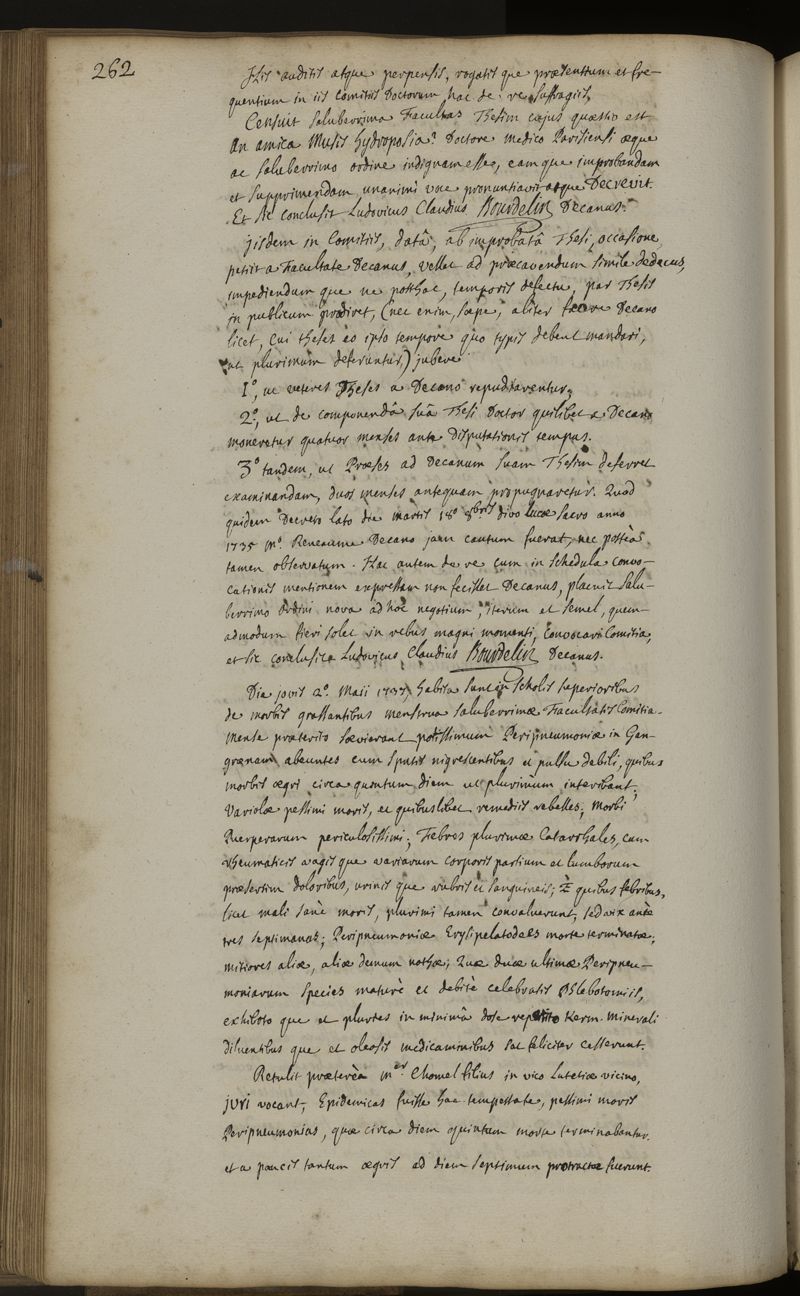 262
Hisce auditis atque perpensis, rogatisque praesentium et fre-
quentium in iis comitiis Doctorum hac de re suffragiis,
Censuit saluberrima Facultas Thesim cujus quaestio est
An amica Musis hydroposia? Doctore medico Parisiensi aeque
ac saluberrimo ordine indignam esse, eamque improbandam
et supprimendam unanimi voce pronuntiavit atque Decrevit.
Et sic conclusit Ludovicus Claudius Bourdelin Decanus.
Jisdem in Comitiis, datâ, ab improbatâ Thesi, occasione
petiit a Facultate Decanus, vellet ad praecavendum simile dedecus,
impediendumque ne posthac, temporis defectu, par Thesis
in publicum prodiret, (nec enim, saepe, aliter facere Decano
licet, cui theses eo ipso tempore quo typis debent mandari,
ut plurimum deferuntur,) jubere
1.°, ut veteres Theses a Decano repudiarentur,
2.°, ut de componendâ suâ Thesi Doctor quilibet a Decano
moneretur quatuor menses ante Disputationis tempus.
3.° tandem, ut Praeses ad Decanum suam Thesim deferret
examinandam, duos menses antequam propugnaretur. Quod
quidem Decreto lato die martis 18.° 8bris divo lucae sacro anno
1735 M.° Reneaume Decano jam cautum fuerat, nec posteà
tamen observatum. Hac autem de re cum in schedula convo-
cationis mentionem expressam non fecisset Decanus, placuit salu-
berrimo ordini nova ad hoc negotium, iterum et semel, quem-
admodum fieri solet in rebus magni momenti, convocari Comitia,
et sic conclusit Ludovicus Claudius Bourdelin Decanus.
Die jovis 2.° Maii 1737, habita sunt in scholis superioribus
de morbis grassantibus menstrua saluberrimae Facultatis Comitia.
Mense praeterito saevierant potissimum Peripneumoniae in Gan-
graenam abeuntes cum sputis nigrescentibus et pulsu debili, quibus
morbis aegri circa quartum diem ut plurimum interibant;
Variolae pessimi moris, et quibuslibet remediis rebelles; Morbi
Puerperarum periculosissimi; Febres plurimae Catarrhales, cum
rheumaticis vagisque variarum corporis partium et lumborum
praesertim doloribus, urinisque rubris et sanguineis; È quibus febribus,
licet mali sanè moris, plurimi tamen convaluerunt, sed vix ante
tres septimanas; Peripneumoniae Erysipelatodaes morte terminatae;
mitiores aliae, aliae demum nothae; Quae duae ultimae Peripneu-
moniarum species maturè et debitè celebratis Phlebotomiis,
exhibitoque et pluries in minimâ dose repetito Kerm. Minerali
diluentibusque et oleosis medicaminibus sat feliciter cesserunt.
Retulit praetereà M.er Chomel filius in vico Lutetiae vicino,
jvri vocant, Epidemicas fuisse hac tempestate, pessimi moris
Peripneumonias, quae circa diem quintum morte terminabantur
et a paucis tantum aegris ad diem septimum protractae fuerunt.